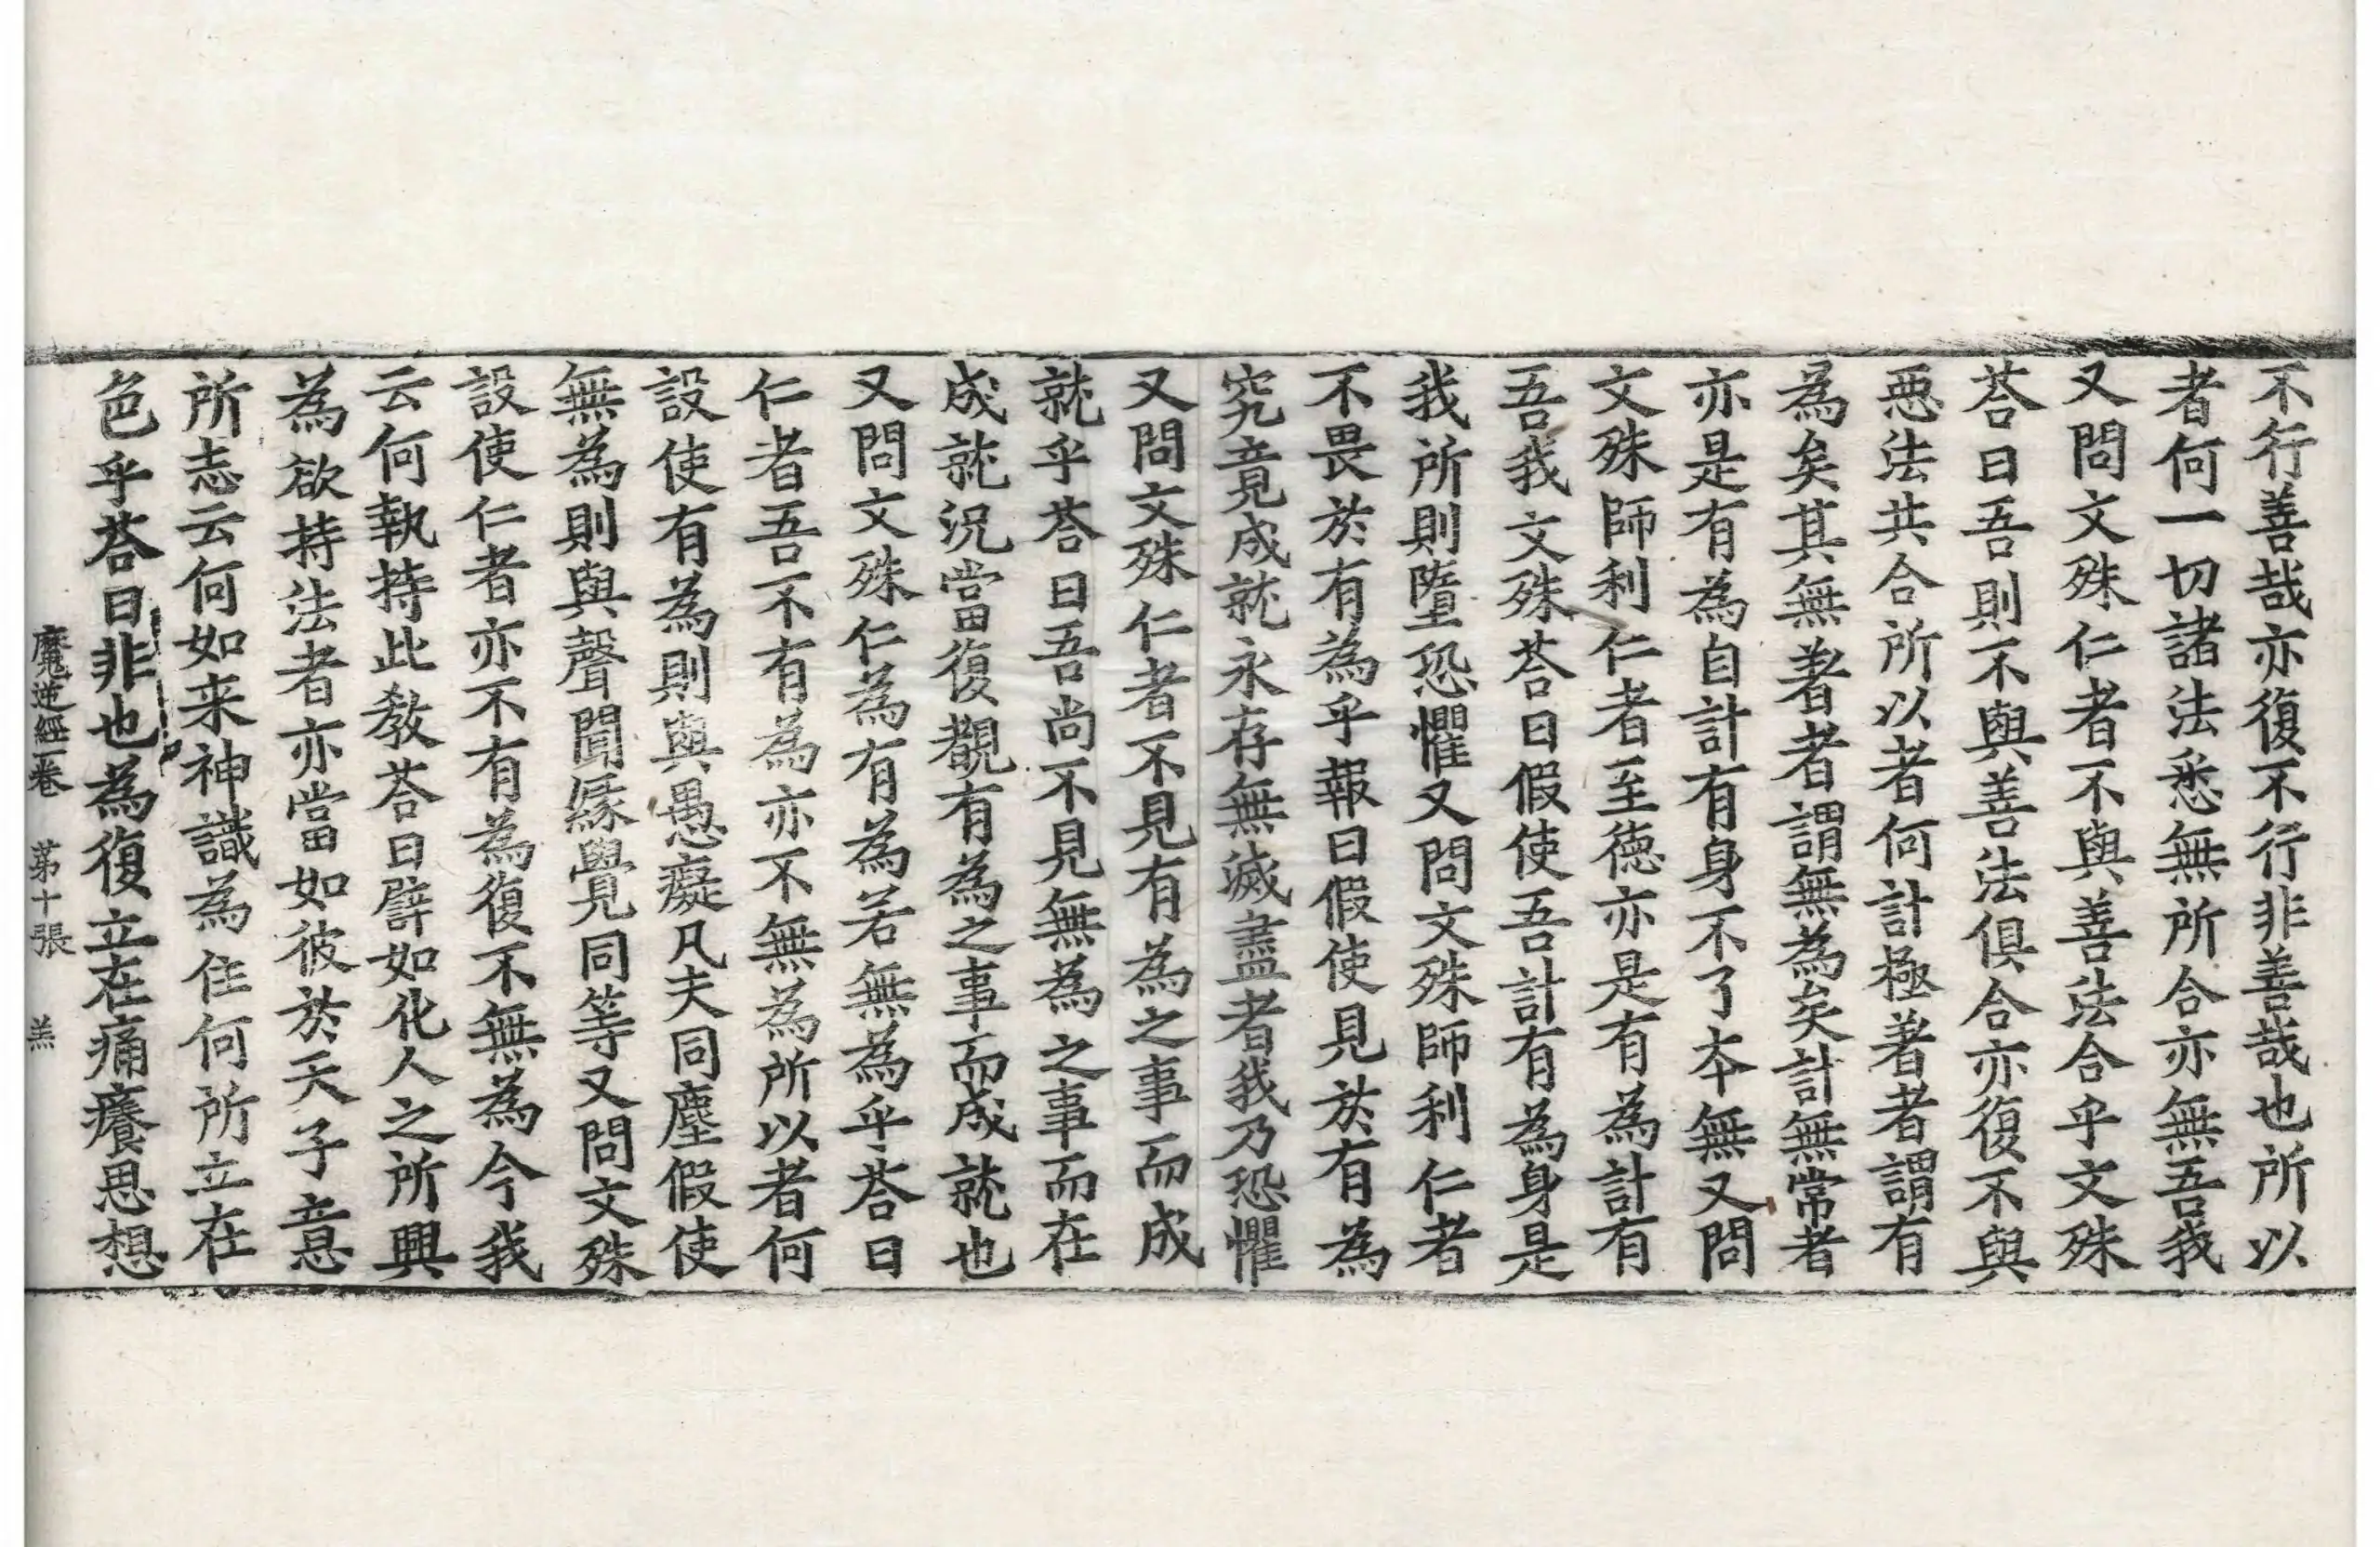 不行善哉亦復不行非善哉也所以
者何一切諸法悉無所合亦無吾我
又問文殊仁者不與善法合乎文殊
荅曰吾則不與善法俱合亦復不與
惡法共合所以者何計極著者謂有
為矣其無著者謂無為矣計無常者
亦是有為自計有身不了本無又問
文殊師利仁者至德亦是有為計有
吾我文殊荅曰假使吾計有為身是
我所則墮恐懼又問文殊師利仁者
不畏於有為乎報曰假使見於有為
究竟成就永存無滅盡者我乃恐懼
又問文殊仁者不見有為之事而成
就乎荅曰吾尚不見無為之事而在
成就況當復覩有為之事而成就也
又問文殊仁為有為若無為乎荅曰
仁者吾不有為亦不無為所以者何
設使有為則與愚癡凡夫同塵假使
無為則與聲聞緣覺同等又問文殊
設使仁者亦不有為復不無為今我
云何執持此教荅曰譬如化人之所興
為欲持法者亦當如彼於天子意
所志云何如来神識為住何所立在
色乎荅曰非也為復立在痛癢思想
魔逆經一卷 第十張 羔